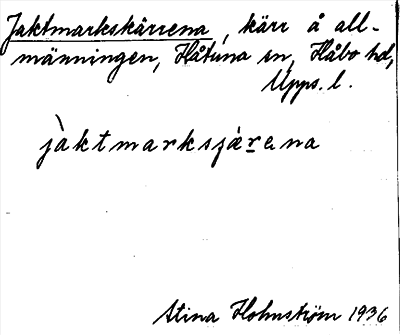 Jaktmarkskärrena, kärr å all-
männingen, Håtuna sn, Håbo hd,
Upps. l.
jàktmarksjæ̀rena
Stina Holmström 1936